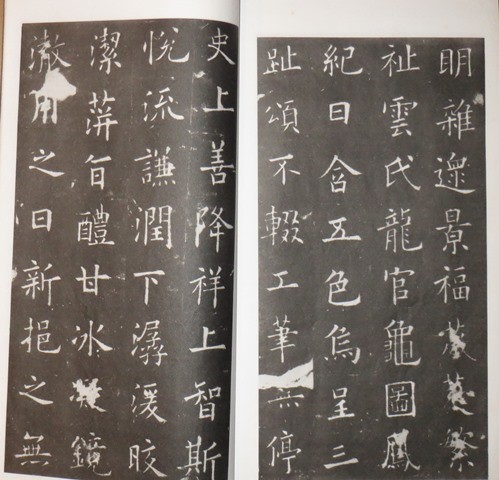 明雜遝景福葳蕤繁
祉雲氏龍官龜圖鳳
紀日含五色烏呈三
趾頌不輟工筆無停
史上善降祥上智斯
悅流謙潤下潺湲晈
潔蓱旨醴甘冰凝鏡
澈用之日新挹之無